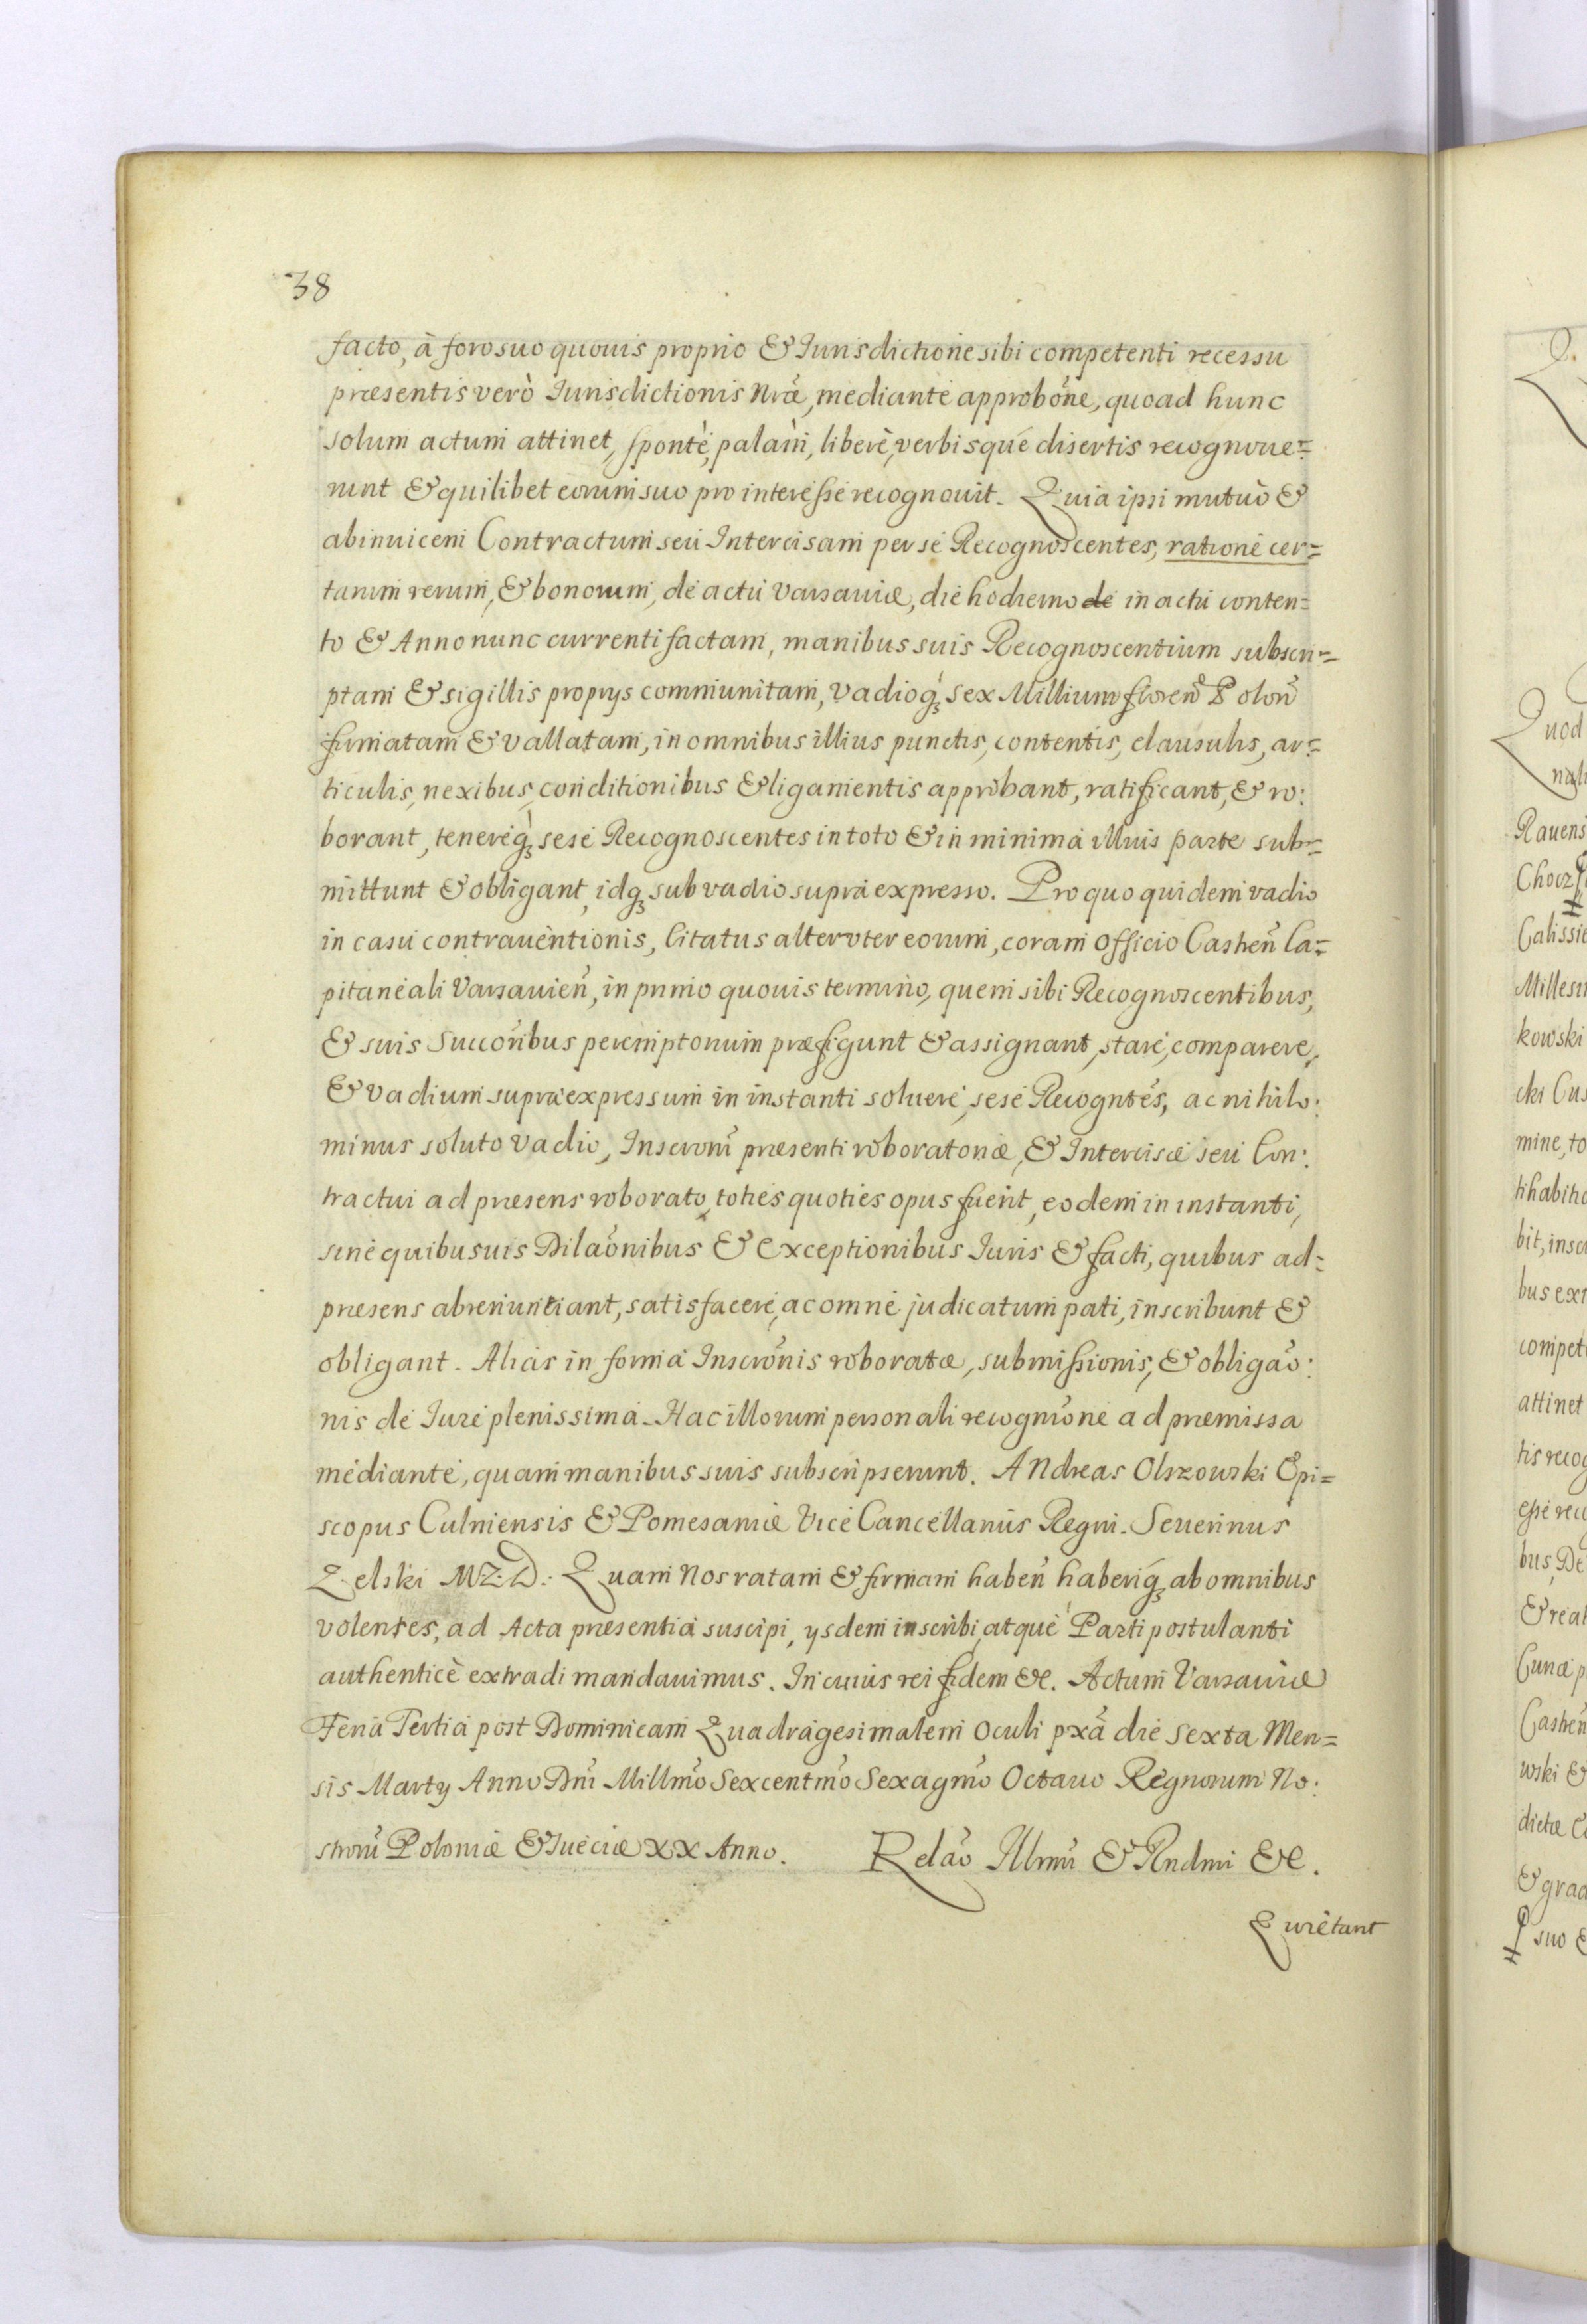 38
facto, à foro suo quouis proprio & Iurisdictione sibi competenti recessu
præsentis verò Iurisdictionis Nræ̃, mediante approbõne, quoad hunc
solum actum attinet, spontè, palàm, liberè, verbisque disertis recognoue=
runt & quilibet eorum suo pro interesse recognouit. Quia ipsi mutuò &
abinuicem Contractum seu Intercisam per se Recognoscentes, ratione cer=
tarum rerum, & bonorum, de actu Varsauiæ, die hodierno de in actu conten=
to & Anno nunc currenti factam, manibus suis Recognoscentium subscri=
ptam & sigillis proprys communitam, vadioq́ꝫ sex Millium floren̄ Polon̄
firmatam & vallatam, in omnibus illius punctis, contentis, clausulis, ar=
ticulis, nexibus, conditionibus & ligamentis approbant, ratificant, & ro:
borant, tenereq́ꝫ sese Recognoscentes in toto & in minima illius parte sub=
mittunt & obligant, idqꝫ sub vadio supra expresso. Pro quo quidem vadio
in casu contrauentionis, Citatus alteruter eorum, coram Officio Castren̄ Ca=
pitaneali Varsauien̄, in primo quouis termino, quem sibi Recognoscentibus,
& suis Succõribus peremptorium præfigunt & assignant, stare, comparere,
& vadium supra expressum in instanti soluere, sese Recogntẽs, ac nihilo:
minus soluto vadio, Inscrõni præsenti roboratoriæ, & Intercisæ seu Con:
tractui ad præsens roborato, toties quoties opus fuerit, eodem in instanti,
sine quibusuis Dilaõnibus & exceptionibus Iuris & facti, quibus ad=
præsens abrenuntiant, satisfacere, ac omne judicatum pati, inscribunt &
obligant. Alias in forma Inscrõnis roboratæ, submissionis, & obligaõ:
nis de Iure plenissima. Hac illorum personali recogniõne ad præmissa
mediante, quam manibus suis subscripserunt. ANdreas Olszowski Epi=
scopus Culmensis & Pomesaniæ Vice Cancellarius Regni. Seuerinus
Zelski MZ: D: Quam Nos ratam & firmam haben̄ haberiq́ꝫ ab omnibus
volentes, ad Acta præsentia suscipi, ysdem inscribi, atque Parti postulanti
authenticè extradi mandauimus. In cuius rei fidem &c. Actum Varsauiæ
Feria Tertia post Dominicam Quadragesimalem Oculi pxã die sexta Men=
sis Marty Anno Dnĩ Millmõ Sexcentmõ Sexagmõ Octauo Regnorum No:
strorũ Poloniæ & Sueciæ XX Anno. Relaõ Illmi & Rndmi &c.
Quietant